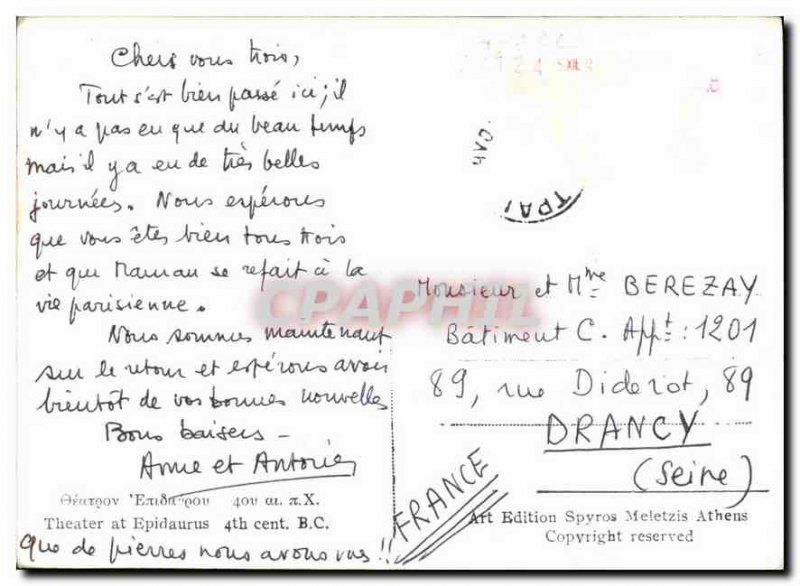 Chers vous trois,
Tout s'est bien passé ici; il
n'y a pas eu que du beau temps
mais il y a eu de très belles
journées. Nous espérons
que vous êtes bien tous trois
et que Maman se refait à la
vie parisienne.
Nous sommes maintenant
sur le retour et espérons avoir
bientôt de vos bonnes nouvelles
Bons baisers -
Anne et Antoine
Θέατρον Ἐπιδαύρου 4ου αι. π.Χ.
Theater at Epidaurus 4th cent. B.C.
Que de pierres nous avons vus !!
CPAPHIL
ΤΡΑΙ
Monsieur et Mme BEREZAY
Bâtiment C. Appt: 1201
89, rue Diderot, 89
DRANCY
(Seine)
FRANCE
Art Edition Spyros Meletzis Athens
Copyright reserved